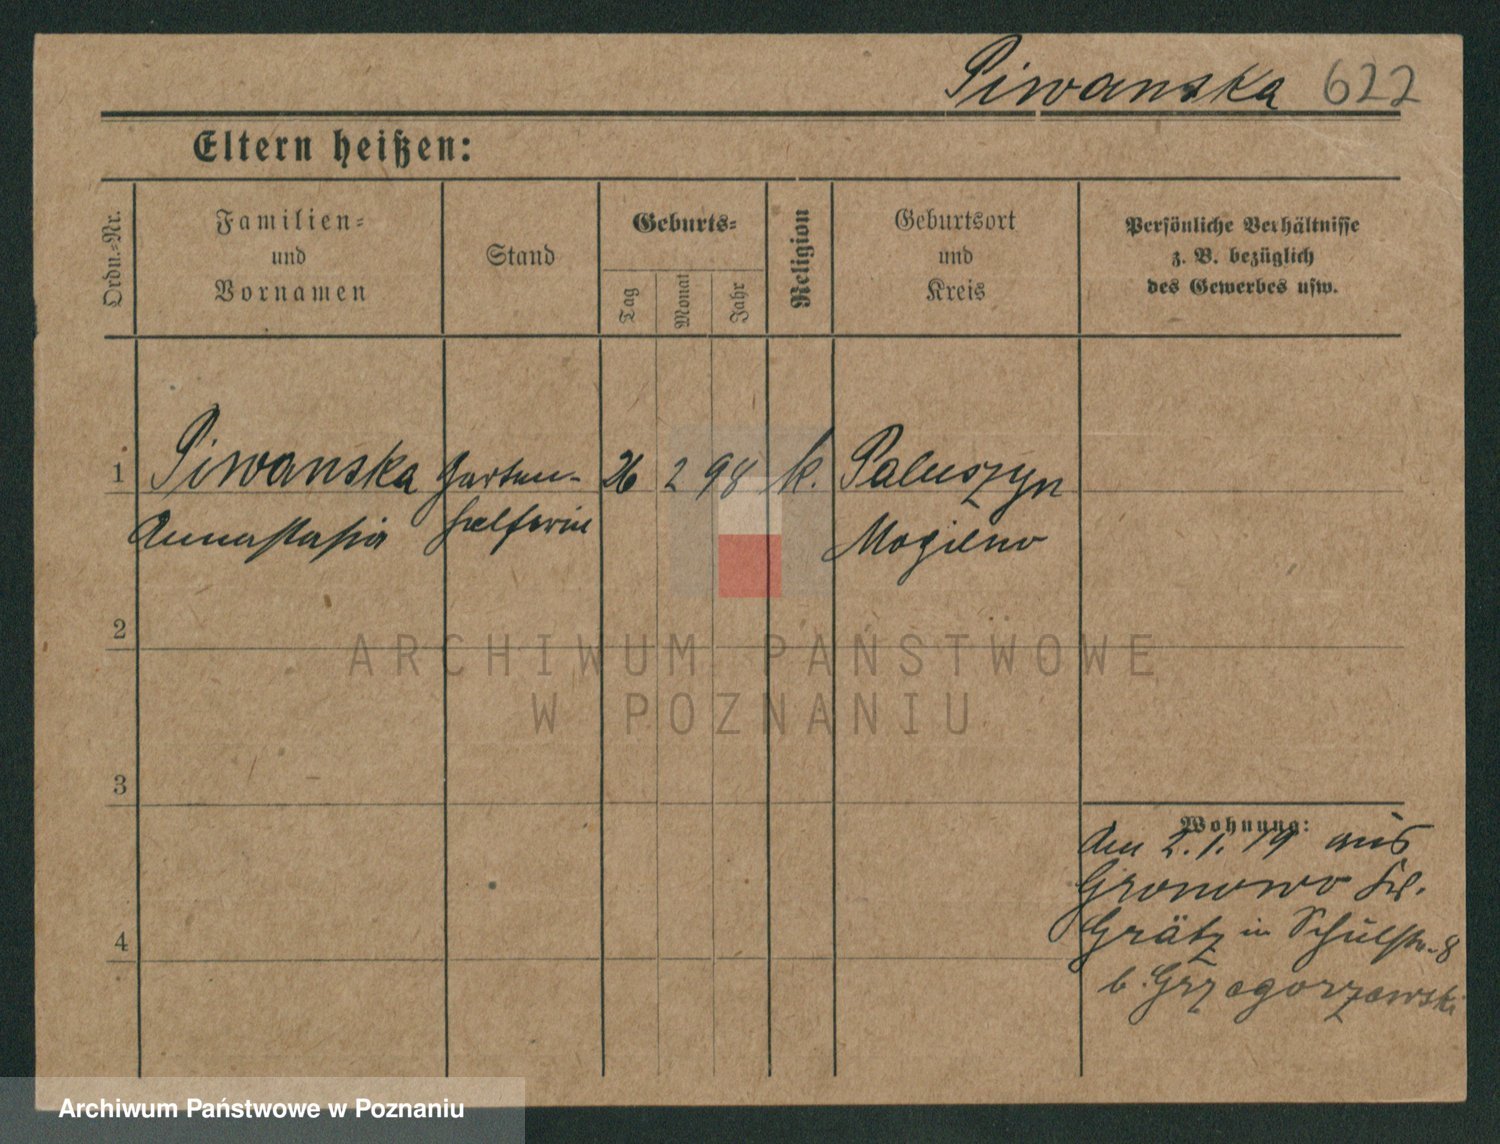 Piwanska 622
Eltern heißen:
Ordn.-Nr.
Familien-
und
Vornamen
Stand
Geburts-
Tag
Monat
Jahr
Religion
Geburtsort
und
Kreis
Persönliche Verhältnisse
z. B. bezüglich
des Gewerbes usw.
1 Piwanska Garten- 26 2 98 k. Paluszyn
Annastasia helferin Mogieno
2
3
Wohnung:
Am 2.1.19 aus
Gronowo Kr.
4 Grätz in Schulstr. 8
b. Grzegorzewski
ARCHIWUM PAŃSTWOWE
W POZNANIU
Archiwum Państwowe w Poznaniu